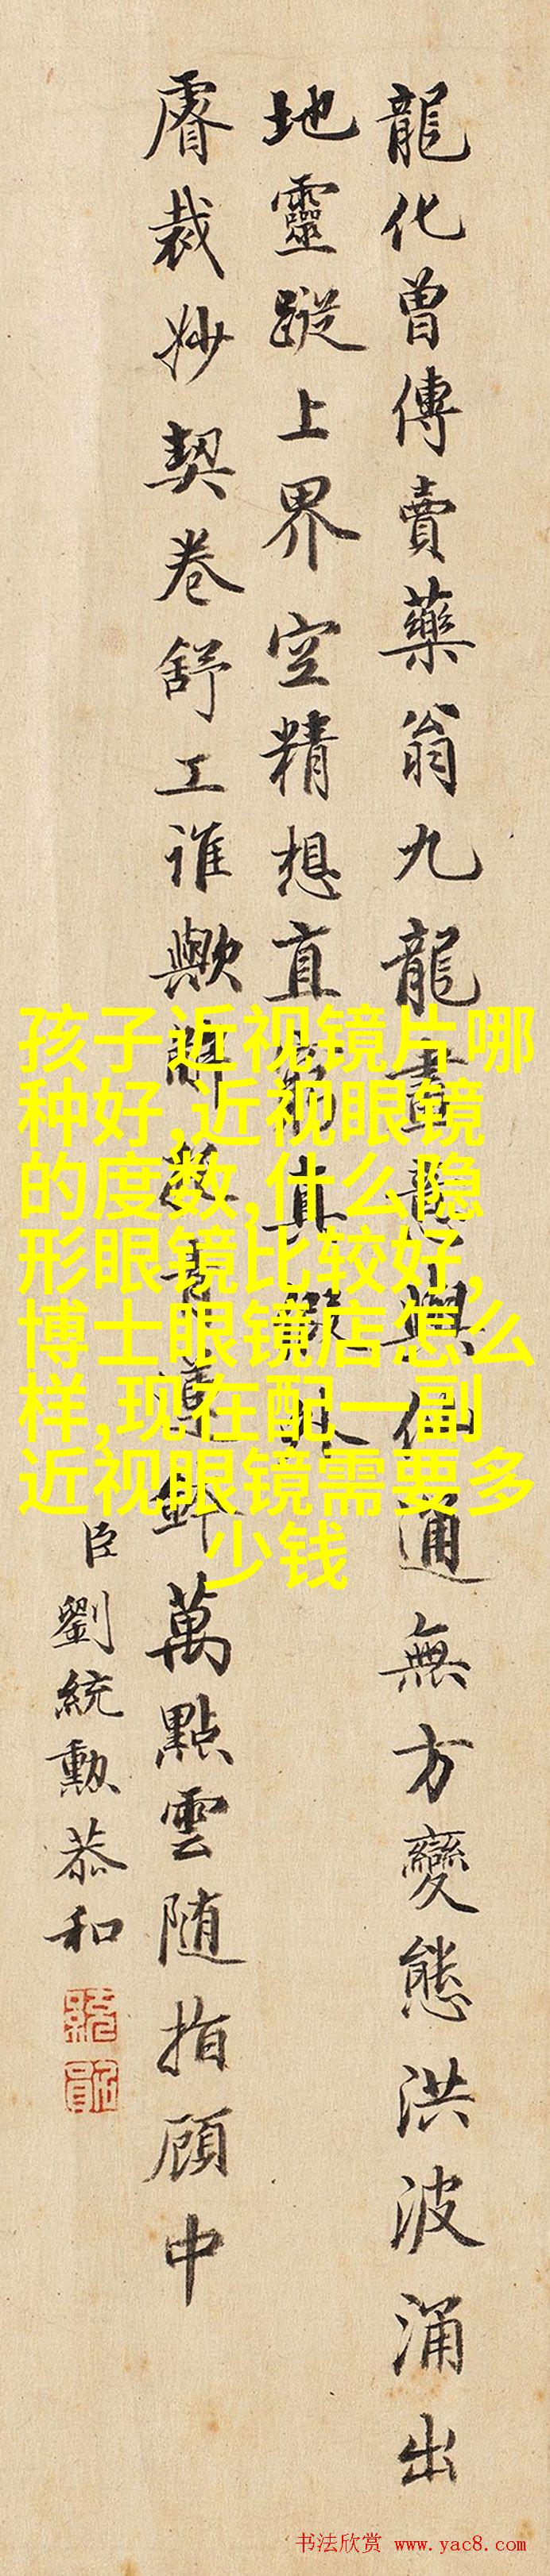 龍化曾傳賣藥翁九龍畫與化通無方變態洪波涌出
地靈蹤上界空精想直真
睿裁妙契卷舒工誰歟萬點雲随指顧中
臣劉統勳恭和
孩子近视镜片哪
种好,近视眼镜
的度数,什么隐
形眼镜比较好,
博士眼镜店怎么
样,现在配一副
近视眼镜需要多
少钱
书法欣赏 www.yac8.com